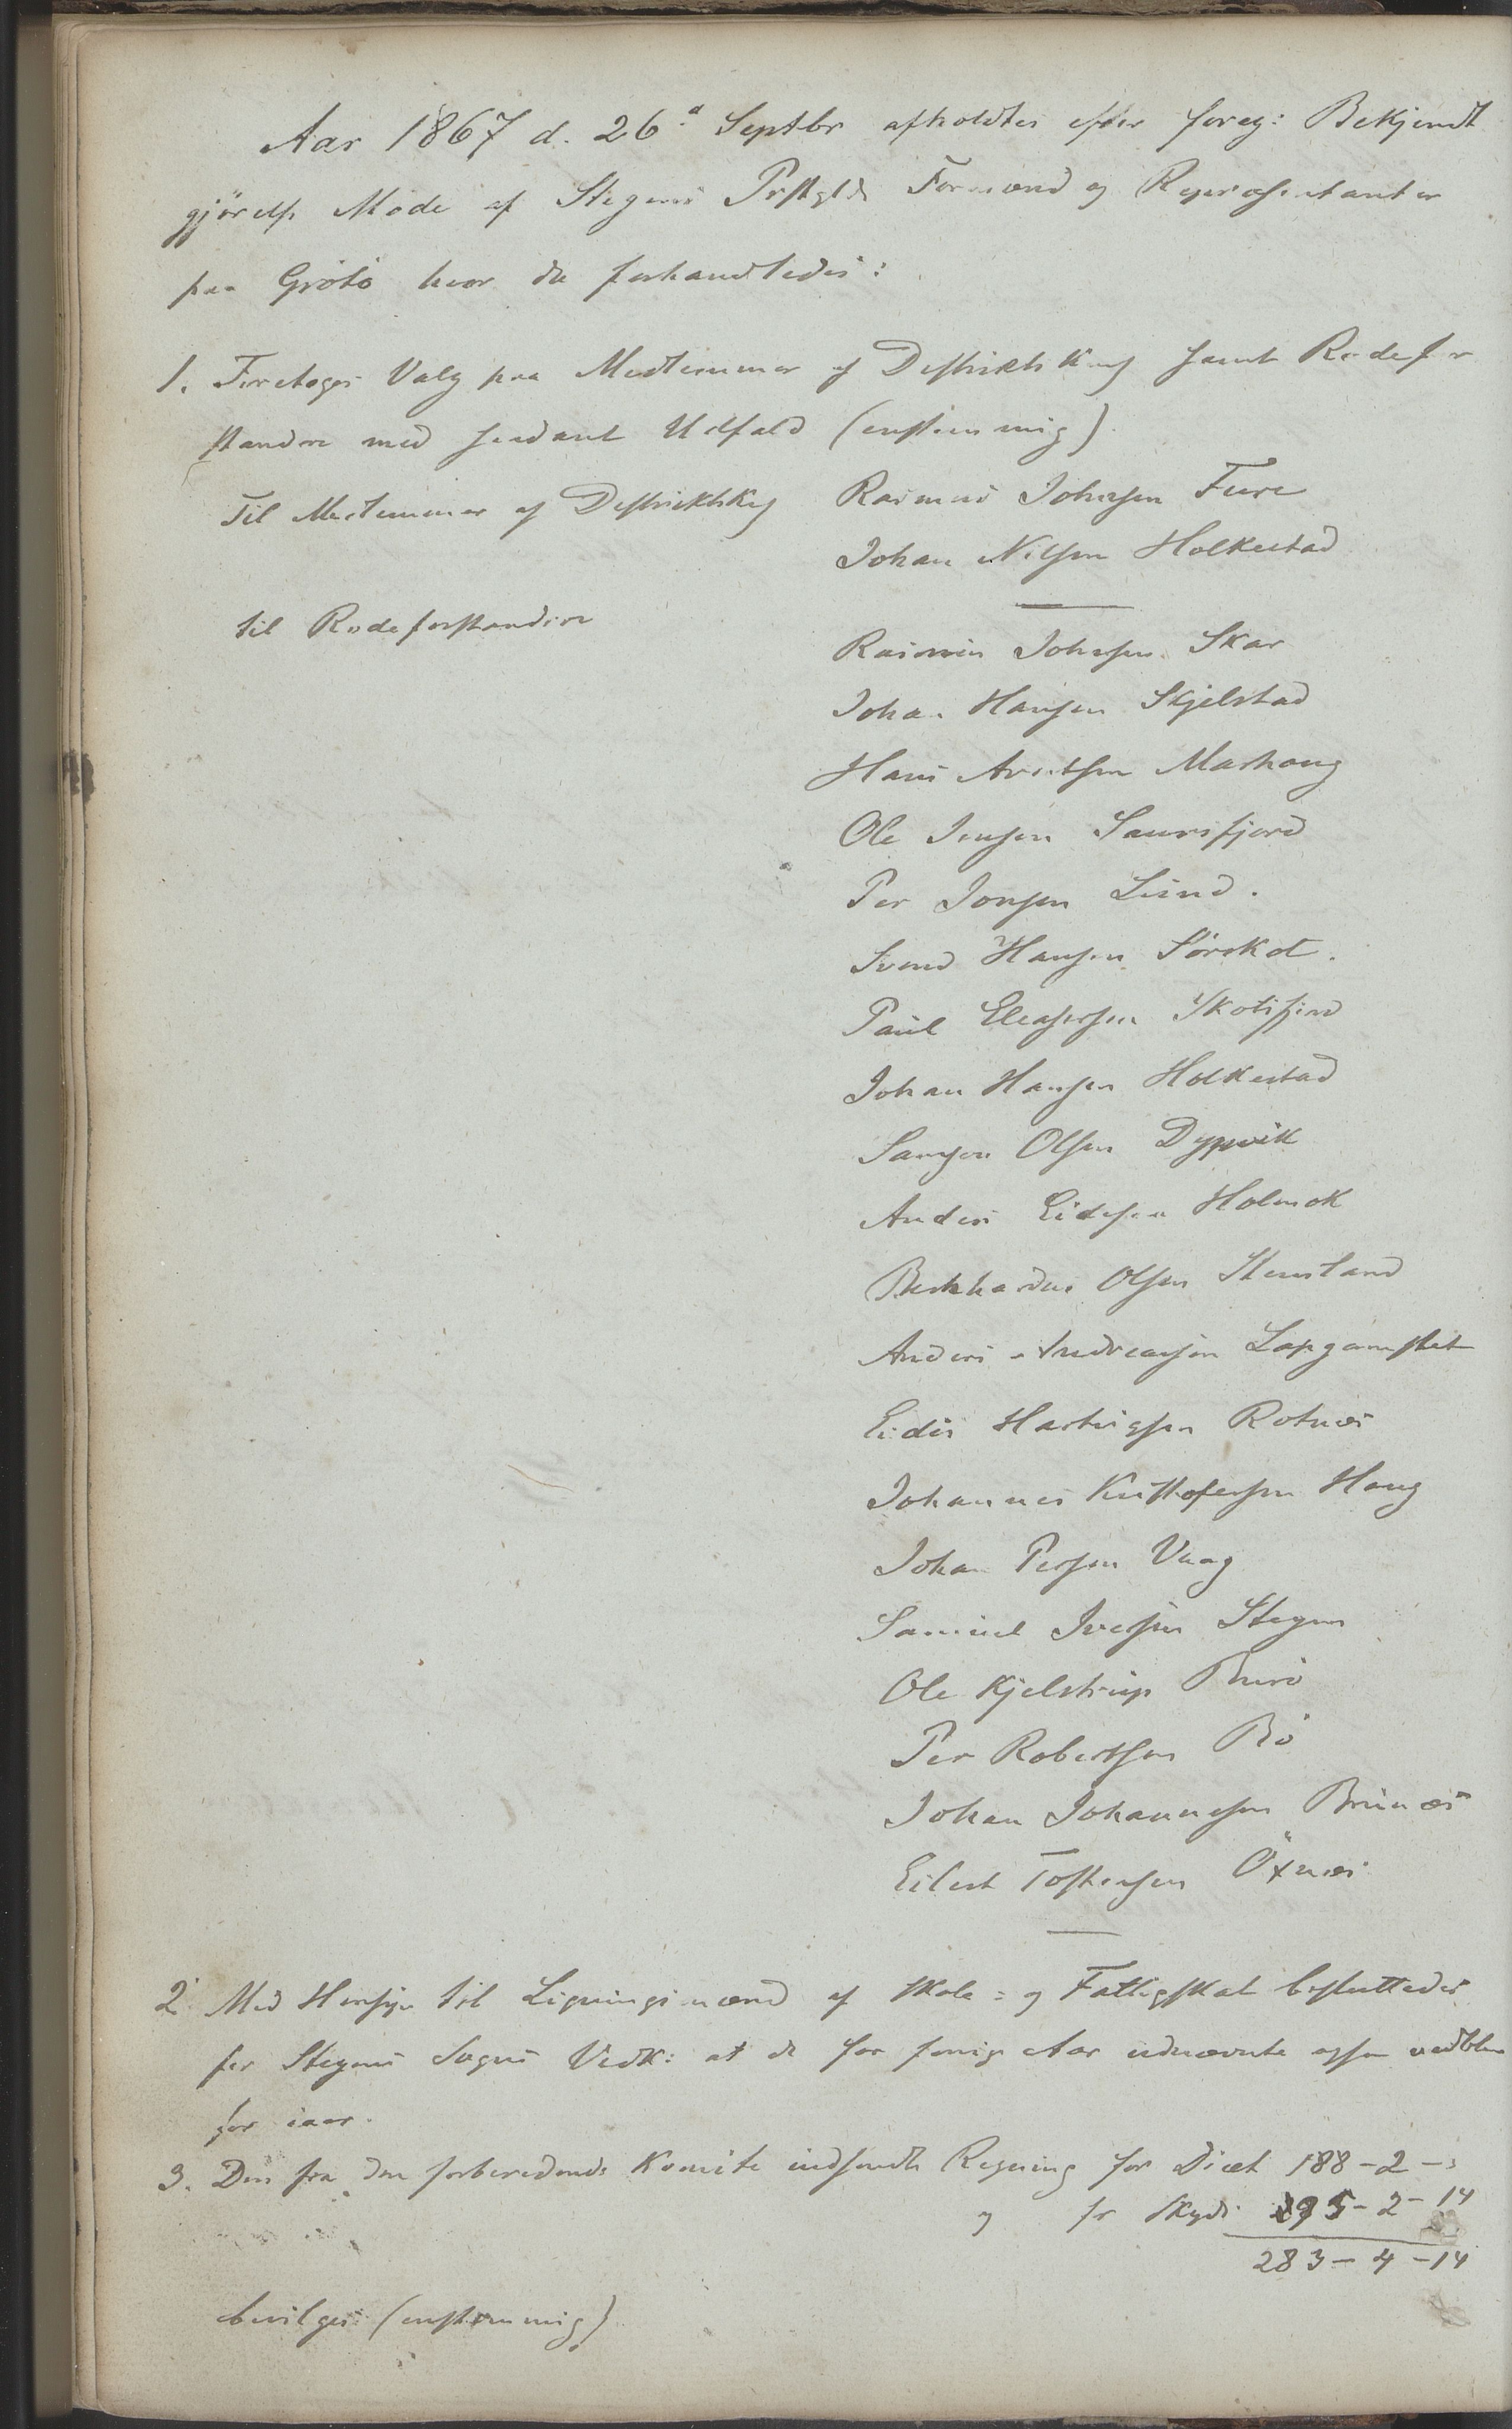 Aar 1867 d. 26d Septbr afholdtes efter foreg: Bekjendt
gjørelse Møde af Stegens Prstgjlds Formænd og Repræsentanter
paa Grøtø hvor da forhandledes:
1. Foretoges Valg paa Medlemmer af Distrikts K samt Rodefor
standere med saadant Udfald (enstemmig).
Til Medlemmer af Distrikts K Rasmus Johnsen Fure
Johan Nilsen Holkestad
til Rodeforstandere
Rasmus Johnsen Skar
Johan Hansen Skjelstad
Hans Arntsen Marhaug
Ole Jensen Saursfjord
Per Jonsen Lund.
Svend Hansen Sørskot.
Paul Eleasersen Skotsfjord
Johan Hansen Holkestad
Samson Olsen Dypvik
Anders Eidesen Holmok
Olsen Stensland
Anders Andreassen Lapgamslet
Eidis Hartvigsen Rotnæs
Johannes Kristofersen Haug
Johan Persen Vaag
Samuel Iversen Stegen
Ole Kjelstrup
Per Robertsen Bø
Johan Johannesen Brunæs
Eilert Tostensen Öxnæs
2 Med Hensyn til Ligningsmænd af Skole= og Fattigskat besluttedes
for Stegens Sogns Vedk: at de for forrige Aar udnævnte ogsaa vedblev
for iaar.
3. Den fra den forberedende Komite indsendte Regning for Diæt 188-2-"
og for Skyds 95-2-14
283-4-14
bevilges (enstemmig)